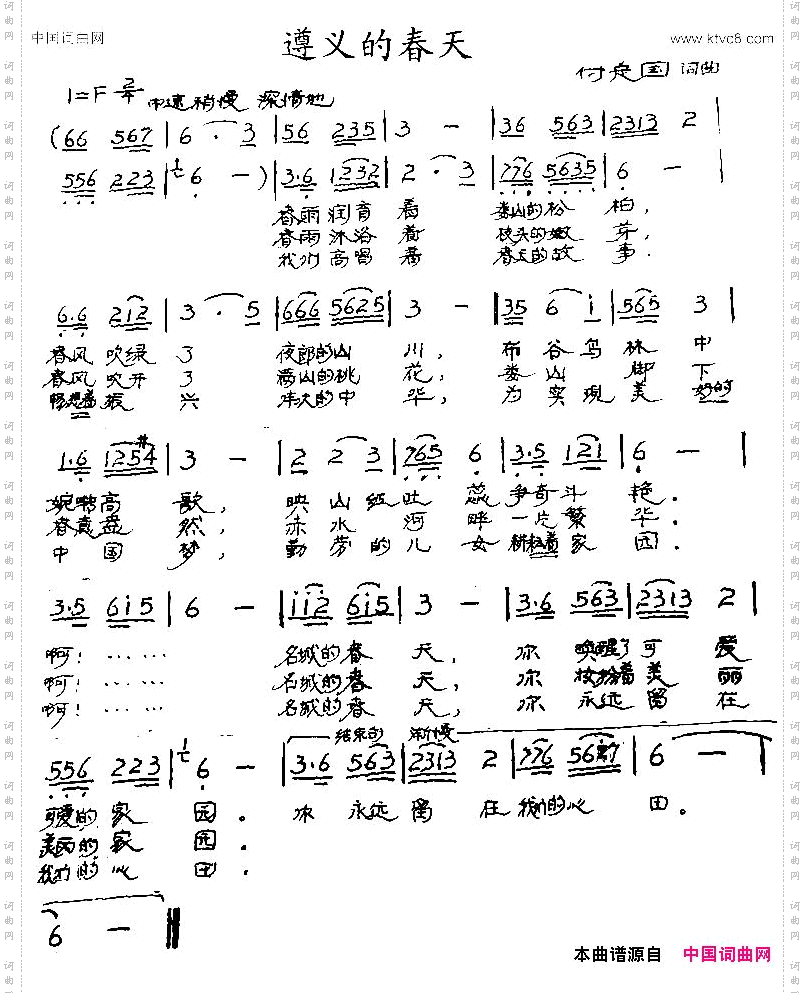 中国词曲网
遵义的春天
www.ktvc8.com
词曲
1=F 2/4 中速稍慢 深情地
(66 567 | 6 · 3 | 56 235 | 3 - | 36 563 | 2313 2 |
556 223 | 6 - ) | 3·6 1232 | 2 · 3 | 776 5635 | 6 - |
春雨润育着 娄山的松柏,
春雨沐浴着 枝头的嫩芽,
我们高唱着 春天的故事.
6·6 212 | 3 · 5 | 666 5625 | 3 - | 35 6 i | 565 3 |
春风吹绿了 夜郎的山川, 布谷鸟林中
春风吹开了 满山的桃花, 娄山脚下
畅想着振兴 伟大的中华, 为实现美好的
1·6 1254 | 3 - | 2 2 3 | 765 6 | 3·5 121 | 6 - |
婉啭高歌, 映山红吐蕊争奇斗艳.
春意盎然, 赤水河畔一片繁华.
中国梦, 勤劳的儿女耕耘着家园.
3·5 6i5 | 6 - | ii2 6i5 | 3 - | 3·6 563 | 2313 2 |
啊! …… 名城的春天, 你唤醒了可爱
啊! …… 名城的春天, 你妆扮着美丽
啊! …… 名城的春天, 你永远留在
结束句 渐慢
556 223 | 6 - | 3·6 563 | 2313 2 | 776 56 | 6 - |
可爱的家园. 你永远留在我们的心田.
美丽的家园.
我们的心田.
6 - ‖
本曲谱源自 中国词曲网